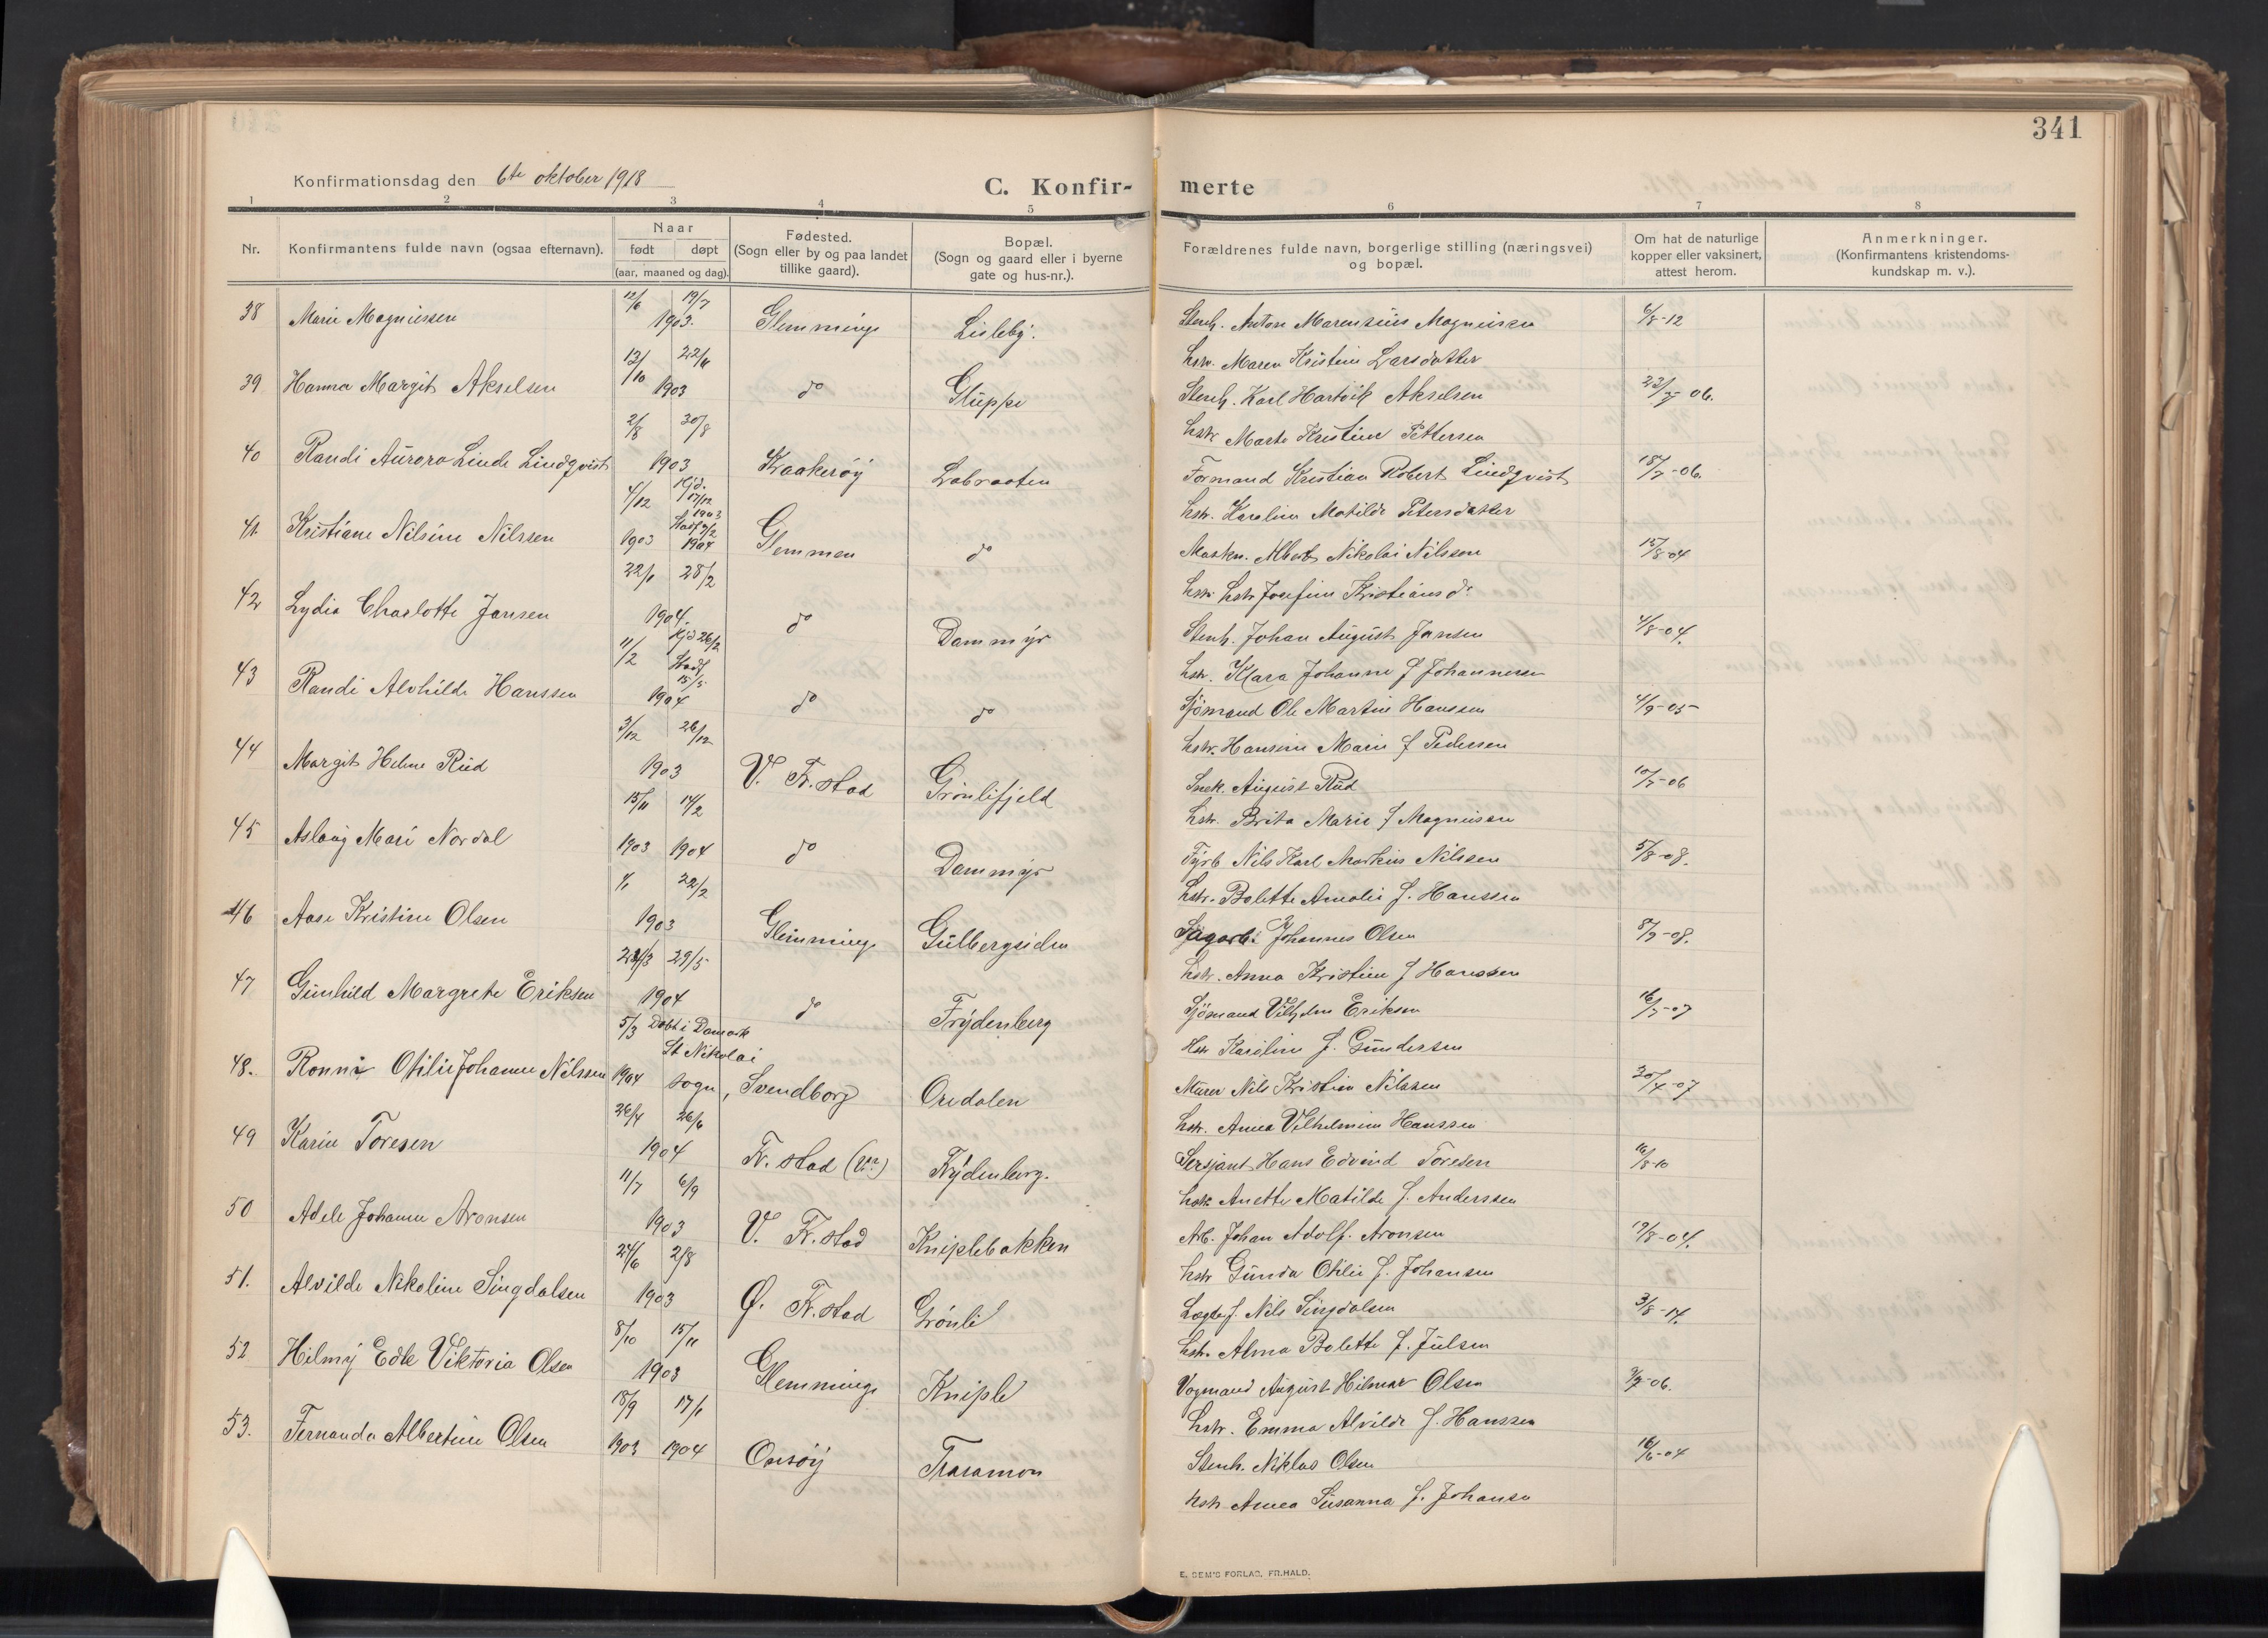 341
Konfirmationsdag den 6te oktober 1918
C. Konfir- merte
1 2 3 4 5 6 7 8
Nr. Konfirmantens fulde navn (ogsaa efternavn). Naar født døpt (aar, maaned og dag). Fødested. (Sogn eller by og paa landet tillike gaard). Bopæl. (Sogn og gaard eller i byerne gate og hus-nr.). Forældrenes fulde navn, borgerlige stilling (næringsvei) og bopæl. Om hat de naturlige kopper eller vaksinert, attest herom. Anmerkninger. (Konfirmantens kristendoms- kundskap m. v.).
38 Marie Magnussen 12/6 19/7 1903. Glemminge Lisleby. Stenh. Anton Marensius Magnussen 6/8-12
hstr. Maren Kristine Larsdatter
39 Hanna Margit Akselsen 13/10 22/11 1903 do Gluppe Stenh. Karl Hartvik Akselsen 23/7-06.
hstr Marte Kristine Pettersen
40 Randi Aurora Linde Lindqvist 2/8 30/8 1903 Kraakerøy Labraaten Formand Kristian Robert Lindqvist 18/7-06.
hstr. Karoline Matilde Petersdatter
41. Kristiane Nilsine Nilssen 4/12 1903 Hjd. 17/12 1903 Stadf 7/2 1904 Glemmen do Maskn. Albert Nikolai Nilssen 15/8-04
hstr. hstr Josefine Kristiansd.
42 Lydia Charlotte Jansen 22/1 28/2 1904. do Dammyr Stenh. Johan August Jansen 4/8-04.
hstr. Klara Johanne f Johannesen
43 Randi Alvhilde Hanssen 11/2 Hjd 26/2 Stadf 15/5 1904 do do Sjömand Ole Martin Hanssen 4/9-05
hstr. Hansine Marie f Pedersen
44 Margit Helene Rud 3/12 26/12 1903 V. Fr.stad Grönlifjeld Snek. August Rud 10/7-06
hstr. Brita Marie f Magnussen
45 Aslaug Mari Nordal 15/11 1903 14/2 1904 do Dammyr Fyrb Nils Karl Markus Nilssen 5/8-08.
hstr. Bolette Amalie f. Hanssen
46 Aase Kristine Olsen 4/1 22/2 1903 Glemminge Gulbergsiden Sagarb. Johannes Olsen 8/9-08.
hstr. Anna Kristine f Hanssen
47 Gunhild Margrete Eriksen 24/3 29/5 1904 do Frydenberg Sjömand Vilhelm Eriksen 16/7-07
Hstr Karoline f. Gundersen
48. Ronni Otilie Johanne Nilssen 5/3 1904 Döbt i Danmark St Nikolai sogn, Svendborg Oredalen Murer Nils Kristian Nilssen 20/4-07
hstr. Anna Vilhelmine Hanssen
49 Karin Toresen 26/4 26/6 1904 Fr. stad Frydenberg. Sersjant Hans Edvind Toresen 16/8-10
hstr Anette Matilde f. Anderssen
50 Adele Johanne Aronsen 11/7 6/9 1903 V. Fr.stad Kniplebakken Arb. Johan Adolf. Aronsen 19/8-04.
hstr Gunda Otilie f. Johansen
51. Alvilde Nikoline Singdalsen 24/6 2/8 1903 Ø. Fr.stad Grönli Nils Singdalsen 3/8-14.
hstr. Alma Bolette f. Julsen
52 Hilmy Edle Viktoria Olsen 8/10 15/11 1903 Glemminge Kniple Vogmand August Hilmar Olsen 9/7-06.
hstr. Emma Alvilde f. Hanssen
53. Fernanda Albertine Olsen 18/9 1903 17/1 1904 Onsöy Trasamon Stenh. Niklas Olsen 16/6-04
hstr Anna Susanna f. Johansen
E. SEM'S FORLAG, FR.HALD.